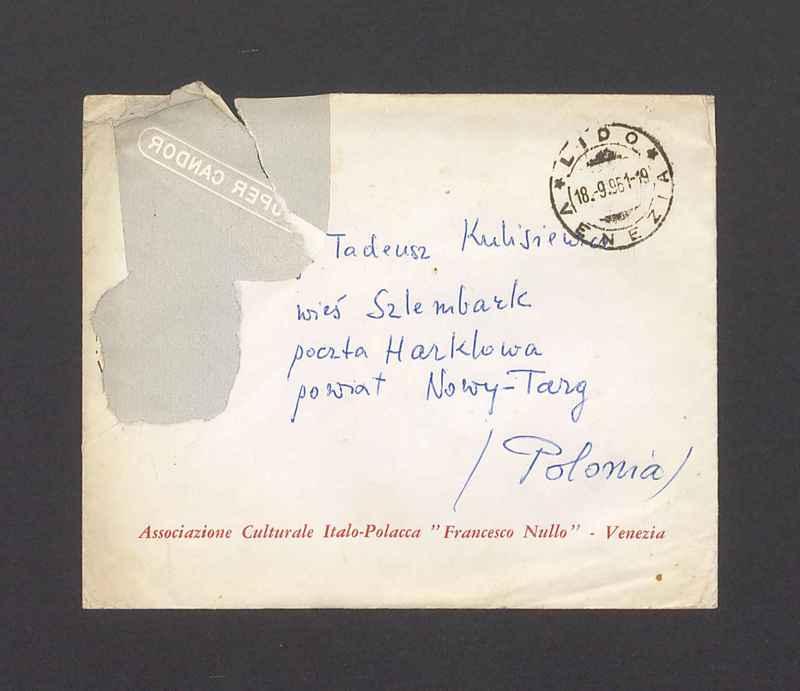 SUPER CANDOR
LIDO
18.-9.961-19
VENEZIA
Tadeusz Kulisiewicz
wieś Szlembark
poczta Harklowa
powiat Nowy-Targ
(Polonia)
Associazione Culturale Italo-Polacca "Francesco Nullo" - Venezia